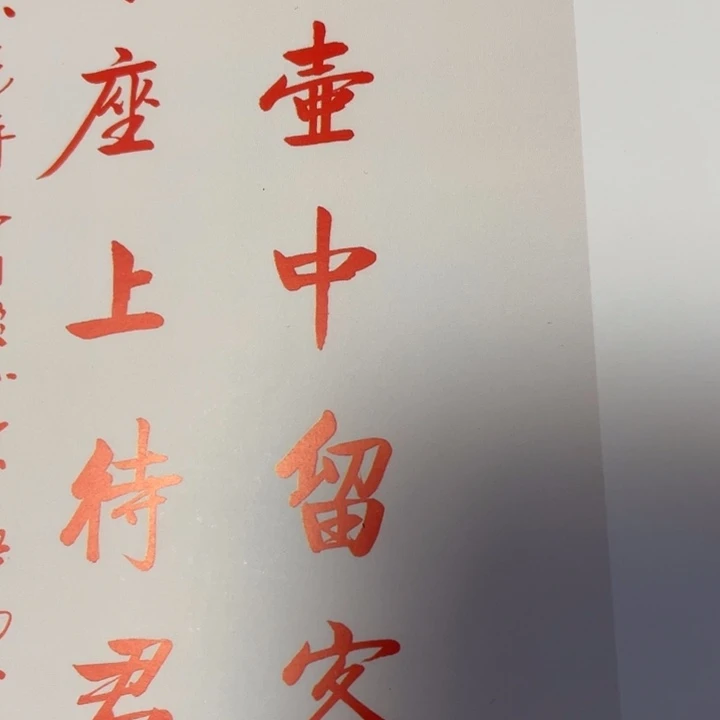 壶中留客
座上待君